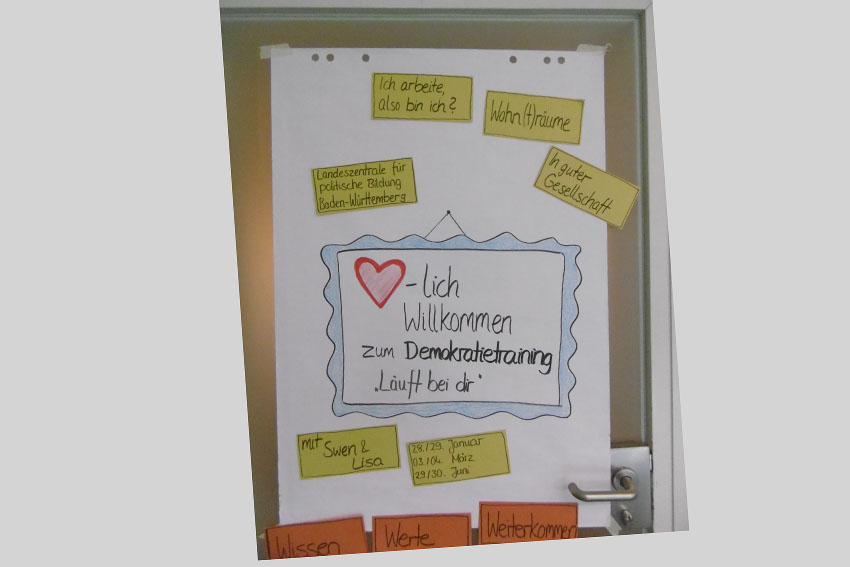 Ich arbeite,
also bin ich?
Wohn(t)räume
In guter
Gesellschaft
Landeszentrale für
politische Bildung
Baden-Württemberg
-lich
Willkommen
zum Demokratietraining
"Läuft bei dir"
mit Swen &
Lisa
28./29. Januar
03./04. März
29/30. Juni
Wissen
Werte
Weiterkommen